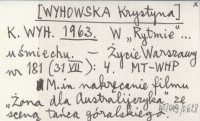 [WYHOWSKA Krystyna]
K. WYH. 1963. W „Rytmie"...
uśmiechu. — Życie Warszawy
nr 181 (31 VII): 4. MT-WHP
M.in. nakręcanie filmu
„Żona dla Australijczyka" ze
sceną tańca góralskiego.